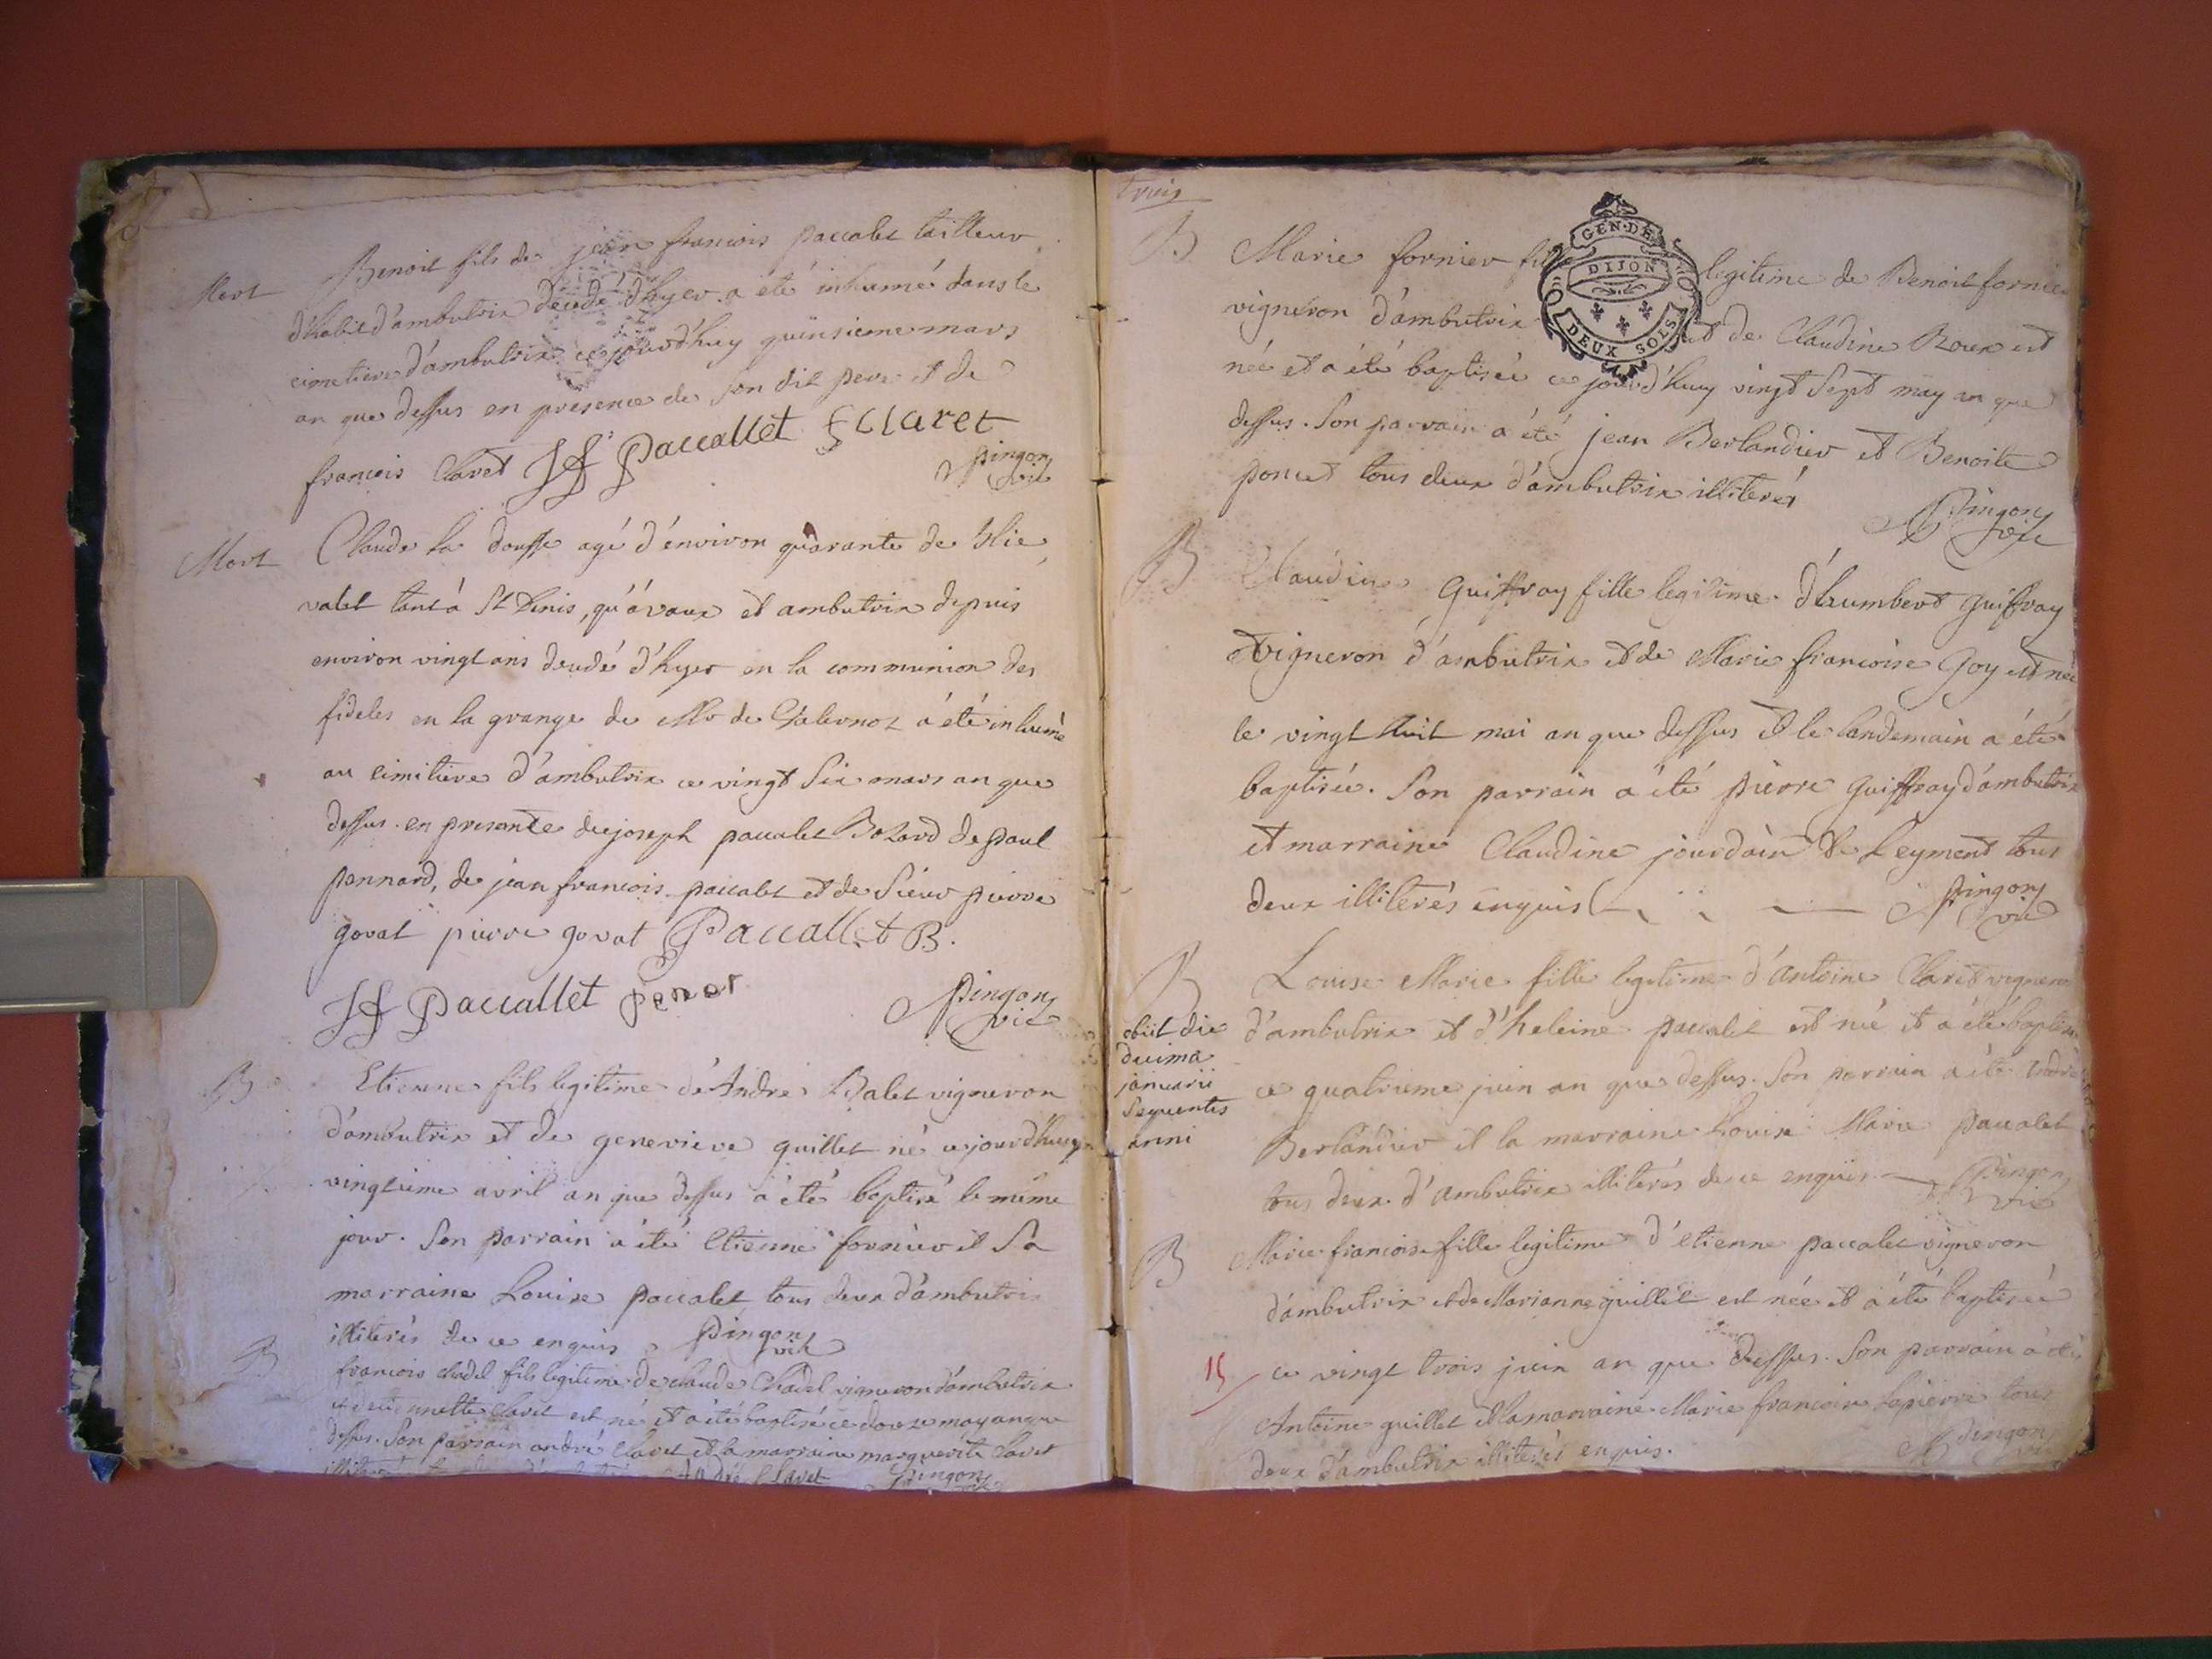 Mort
Benoit fils de jean francois paccalet tailleur
d'habit d'ambutrix decedé d'hyer a été inhumé dans le
cimetiere d'ambutrix ce jourd'huy quinsieme mars
an que dessus en presence de son dit pere et de
francois Claret JF Paccallet F Claret
Pingon vic
Mort
Claude la douffe agé d'environ quarante de
valet tant à St Denis, qu'á vaux et ambutrix depuis
environ vingt ans decedé d'hyer en la communion des
fideles en la grange de Mr de a été inhumé
au cimitiere d'ambutrix ce vingt six mars an que
dessus en presence de joseph paccalet de paul
pennard, de jean francois paccalet et de sieur pierre
goval pierre goval Paccallet B.
JF Paccallet
Pingon vic
B
Etienne fils legitime de Andre Balet vigneron
d'ambutrix et de genevieve guillet né ce jourd'huy
vingtieme avril an que dessus a été baptisé le même
jour. Son parrain a été Etienne fornier et sa
marraine Louise paccalet tous deux d'ambutrix
illiterés de ce enquis Pingon vic
B
francois chadel fils legitime de claude Chadel vigneron d'ambutrix
et de claret est né et a été baptisé ce douze may an que
dessus. Son parrain andré claret et la marraine marguerite claret
André Claret Pingon vic
trois
GEN. DE DIJON
DEUX SOLS
B
Marie fornier fille legitime de Benoit fornier
vigneron d'ambutrix et de Claudine Roux est
née et a été baptisée ce jourd'huy vingt sept may an que
dessus. Son parrain a été jean Berlandier et Benoite
poncet tous deux d'ambutrix illiterés
Pingon vic
B
Claudine Guiffray fille legitime d'humbert guiffray
vigneron d'ambutrix et de Marie francoise Goy est née
le vingt huit mai an que dessus et le landemain a été
baptisée. Son parrain a été pierre guiffray d'ambutrix
et marraine Claudine jourdain de Leyment tous
deux illiterés enquis Pingon vic
B
Louise Marie fille legitime d'antoine Claret vigneron
d'ambutrix et d'heleine paccalet est née et a été baptisée
ce quatrieme juin an que dessus. Son parrain a été André
Berlandier et la marraine Louise Marie paccalet
tous deux d'ambutrix illiterés de ce enquis Pingon vic
obiit die
decima
januarii
sequentis
anni
B
Marie francoise fille legitime d'etienne paccalet vigneron
d'ambutrix et de Marianne guillet est née et a été baptisée
15
ce vingt trois juin an que dessus. Son parrain a été
Antoine guillet et la marraine Marie francoise lapierre tous
deux d'ambutrix illiterés enquis.
Pingon vic